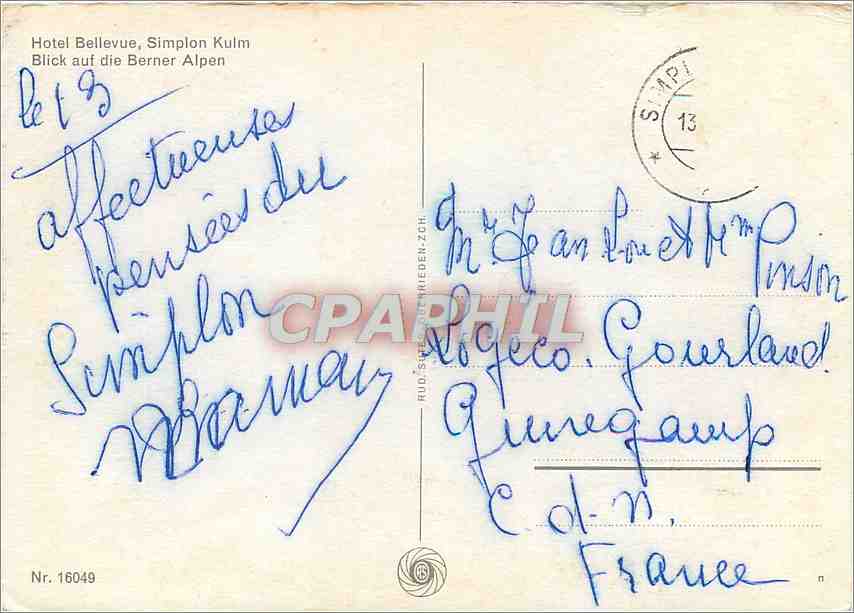 Hotel Bellevue, Simplon Kulm
Blick auf die Berner Alpen
le 13
affectueuses
pensées du
Simplon
SIMPL
13
Mr Jean Lou et Mm Pinson
Logéco. Gourland.
Guingamp
C. d. N.
France
CPARPHIL
RUD. OBERRIEDEN-ZCH.
Nr. 16049